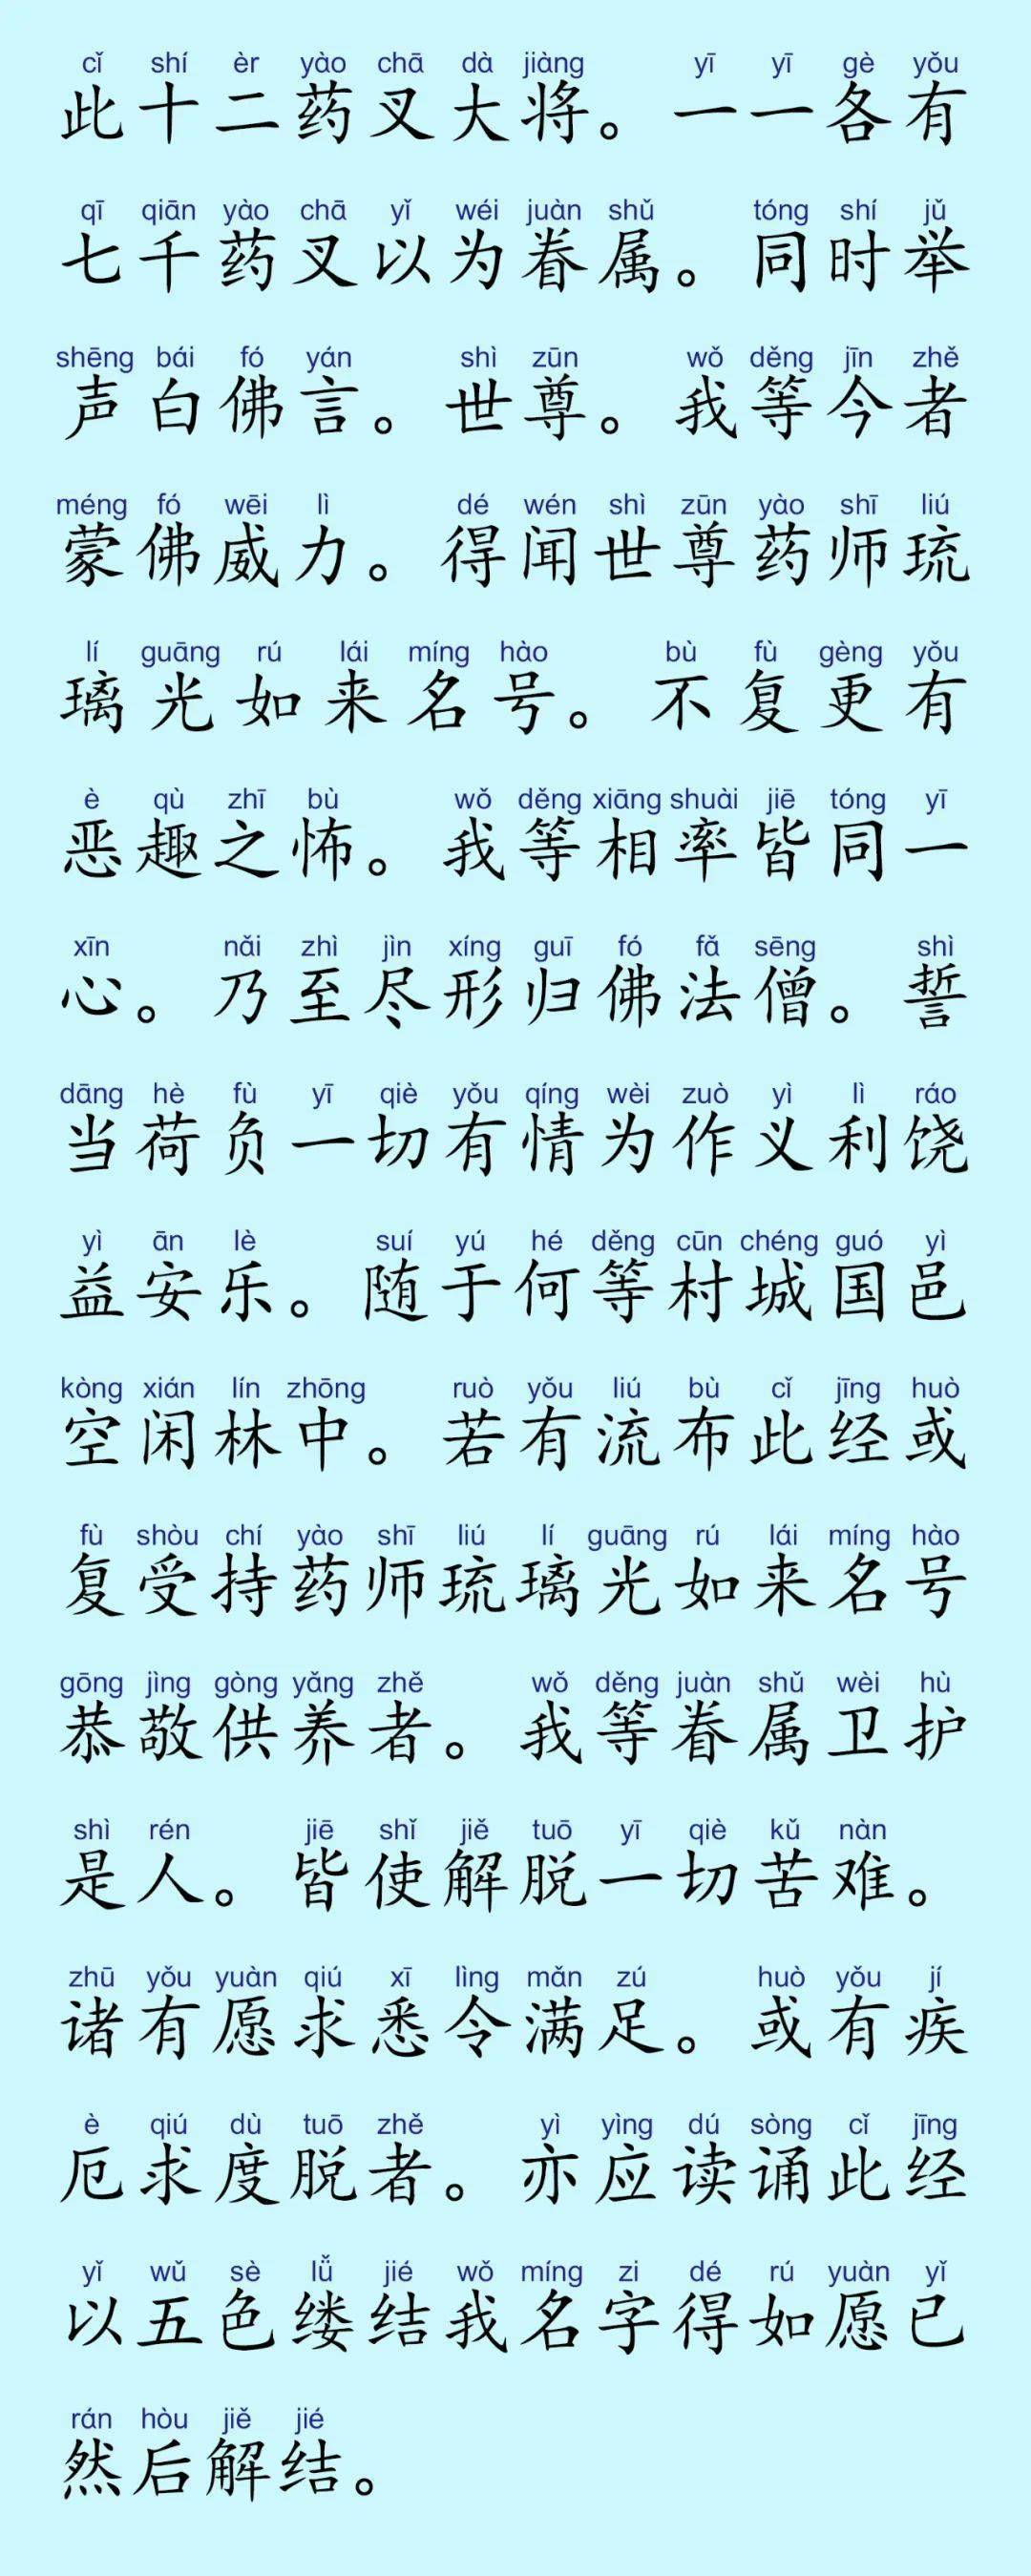 cǐ shí èr yào chā dà jiàng yī yī gè yǒu
此十二药叉大将。一一各有
qī qiān yào chā yǐ wéi juàn shǔ tóng shí jǔ
七千药叉以为眷属。同时举
shēng bái fó yán shì zūn wǒ děng jīn zhě
声白佛言。世尊。我等今者
méng fó wēi lì dé wén shì zūn yào shī liú
蒙佛威力。得闻世尊药师琉
lí guāng rú lái míng hào bù fù gèng yǒu
璃光如来名号。不复更有
è qù zhī bù wǒ děng xiāng shuài jiē tóng yī
恶趣之怖。我等相率皆同一
xīn nǎi zhì jìn xíng guī fó fǎ sēng shì
心。乃至尽形归佛法僧。誓
dāng hè fù yī qiè yǒu qíng wèi zuò yì lì ráo
当荷负一切有情为作义利饶
yì ān lè suí yú hé děng cūn chéng guó yì
益安乐。随于何等村城国邑
kòng xián lín zhōng ruò yǒu liú bù cǐ jīng huò
空闲林中。若有流布此经或
fù shòu chí yào shī liú lí guāng rú lái míng hào
复受持药师琉璃光如来名号
gōng jìng gòng yǎng zhě wǒ děng juàn shǔ wèi hù
恭敬供养者。我等眷属卫护
shì rén jiē shǐ jiě tuō yī qiè kǔ nàn
是人。皆使解脱一切苦难。
zhū yǒu yuàn qiú xī lìng mǎn zú huò yǒu jí
诸有愿求悉令满足。或有疾
è qiú dù tuō zhě yì yìng dú sòng cǐ jīng
厄求度脱者。亦应读诵此经
yǐ wǔ sè lǚ jié wǒ míng zi dé rú yuàn yǐ
以五色缕结我名字得如愿已
rán hòu jiě jié
然后解结。